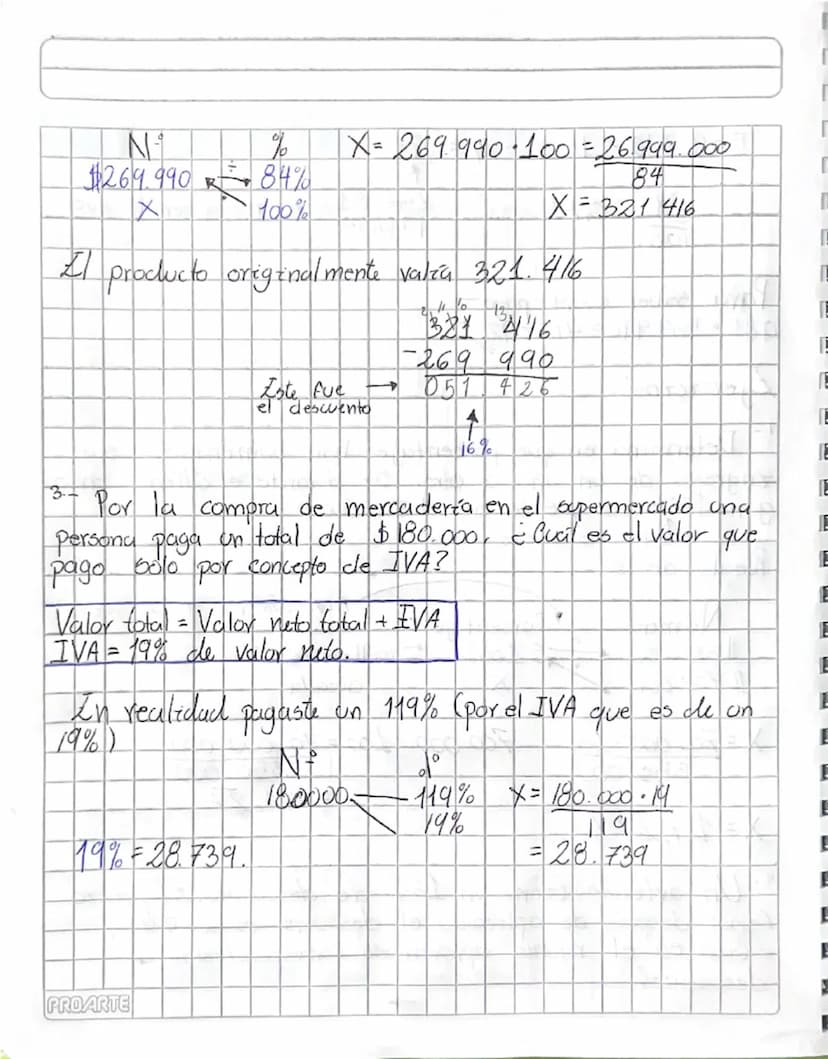 Nº % X= 269.990 · 100 = 26.999.000
$269.990 ÷ 84% 84
X · 100% X = 321 416
El producto originalmente valía 321.416
2 11 10 13
321 416
-269 990
Este fue → 051.426
el descuento
16%
3.- Por la compra de mercadería en el supermercado una
persona paga un total de $180.000, ¿Cuál es el valor que
pago solo por concepto de IVA?
Valor total = Valor neto total + IVA
IVA = 19% de valor neto.
En realidad pagaste un 119% (por el IVA que es de un
19%)
Nº %
180000 119% X= 180.000 · 19
19% 119
19% = 28.739. = 28.739
PROARTE